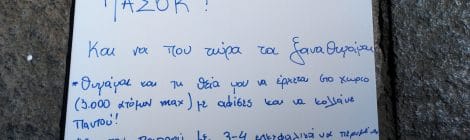 ΠΑΣΟΚ!
Και να που τώρα τα ξαναθυμάμαι
*Θυμάμαι και τη θεία μου να έρχεται στο χωριό
(3.000 ατόμων max) με αφίσες και να κολλάνε
παντού!
3-4 να